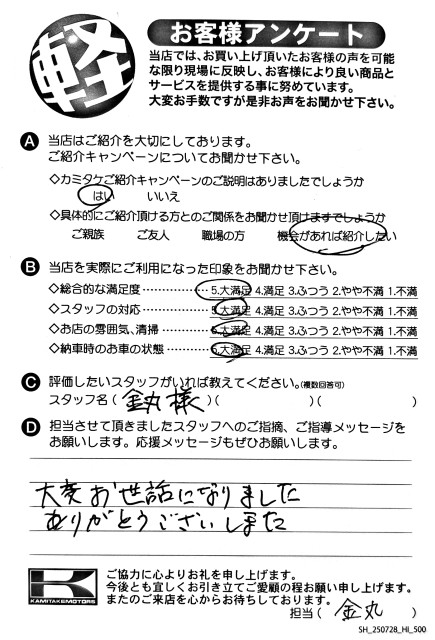 軽
お客様アンケート
当店では、お買い上げ頂いたお客様の声を可能
な限り現場に反映し、お客様により良い商品と
サービスを提供する事に努めています。
大変お手数ですが是非お声をお聞かせ下さい。
A 当店はご紹介を大切にしております。
ご紹介キャンペーンについてお聞かせ下さい。
◇カミタケご紹介キャンペーンのご説明はありましたでしょうか
はい いいえ
◇具体的にご紹介頂ける方とのご関係をお聞かせ頂けますでしょうか
ご親族 ご友人 職場の方 機会があれば紹介したい
B 当店を実際にご利用になった印象をお聞かせ下さい。
◇総合的な満足度 ‥‥‥‥‥‥ 5.大満足 4.満足 3.ふつう 2.やや不満 1.不満
◇スタッフの対応 ‥‥‥‥‥‥ 5.大満足 4.満足 3.ふつう 2.やや不満 1.不満
◇お店の雰囲気、清掃 ‥‥‥‥ 5.大満足 4.満足 3.ふつう 2.やや不満 1.不満
◇納車時のお車の状態 ‥‥‥‥ 5.大満足 4.満足 3.ふつう 2.やや不満 1.不満
C 評価したいスタッフがいれば教えてください。(複数回答可)
スタッフ名( 金丸様 )( )( )
D 担当させて頂きましたスタッフへのご指摘、ご指導メッセージを
お願いします。応援メッセージもぜひお願いします。
大変お世話になりました
ありがとうございしました
KAMITAKEMOTORS
ご協力に心よりお礼を申し上げます。
今後とも宜しくお引き立てご愛顧の程お願い申し上げます。
またのご来店を心からお待ちしております。
担当( 金丸 )
SH_250728_HI_500